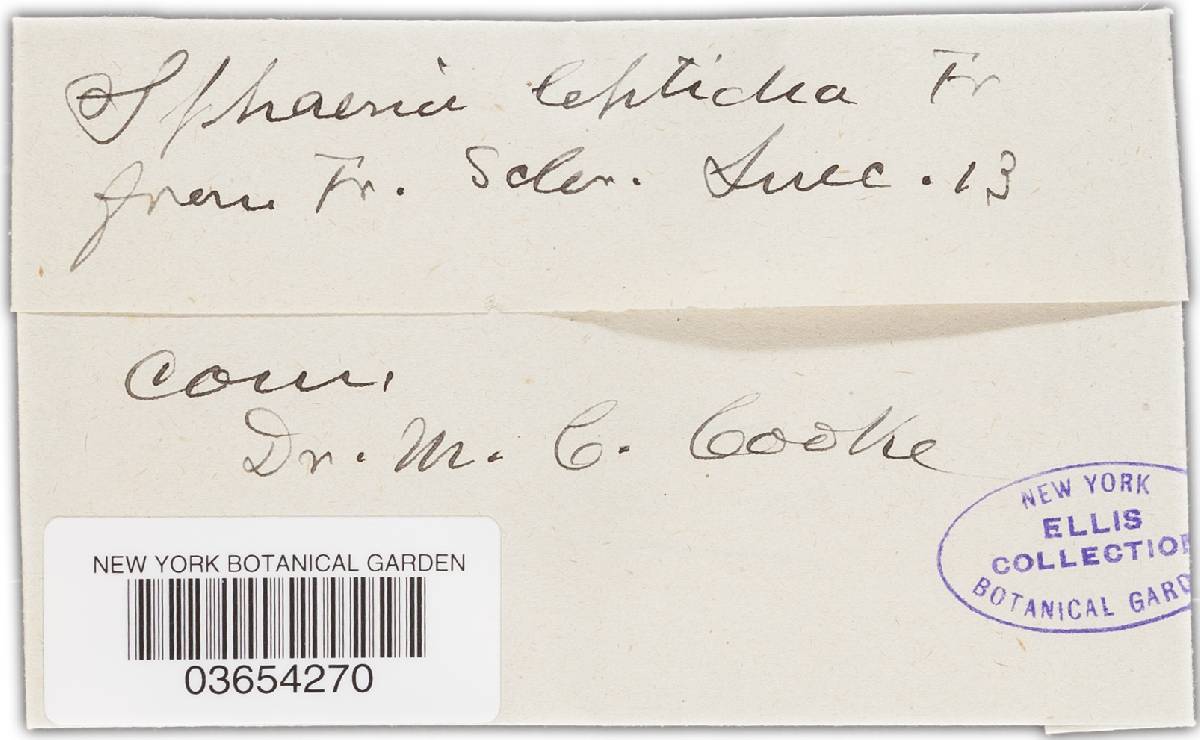 Sphaeria leptidea Fr
from Fr. Scler. Suec. 13
com.
Dr. M. C. Cooke
NEW YORK
ELLIS
COLLECTION
BOTANICAL GARD
NEW YORK BOTANICAL GARDEN
03654270